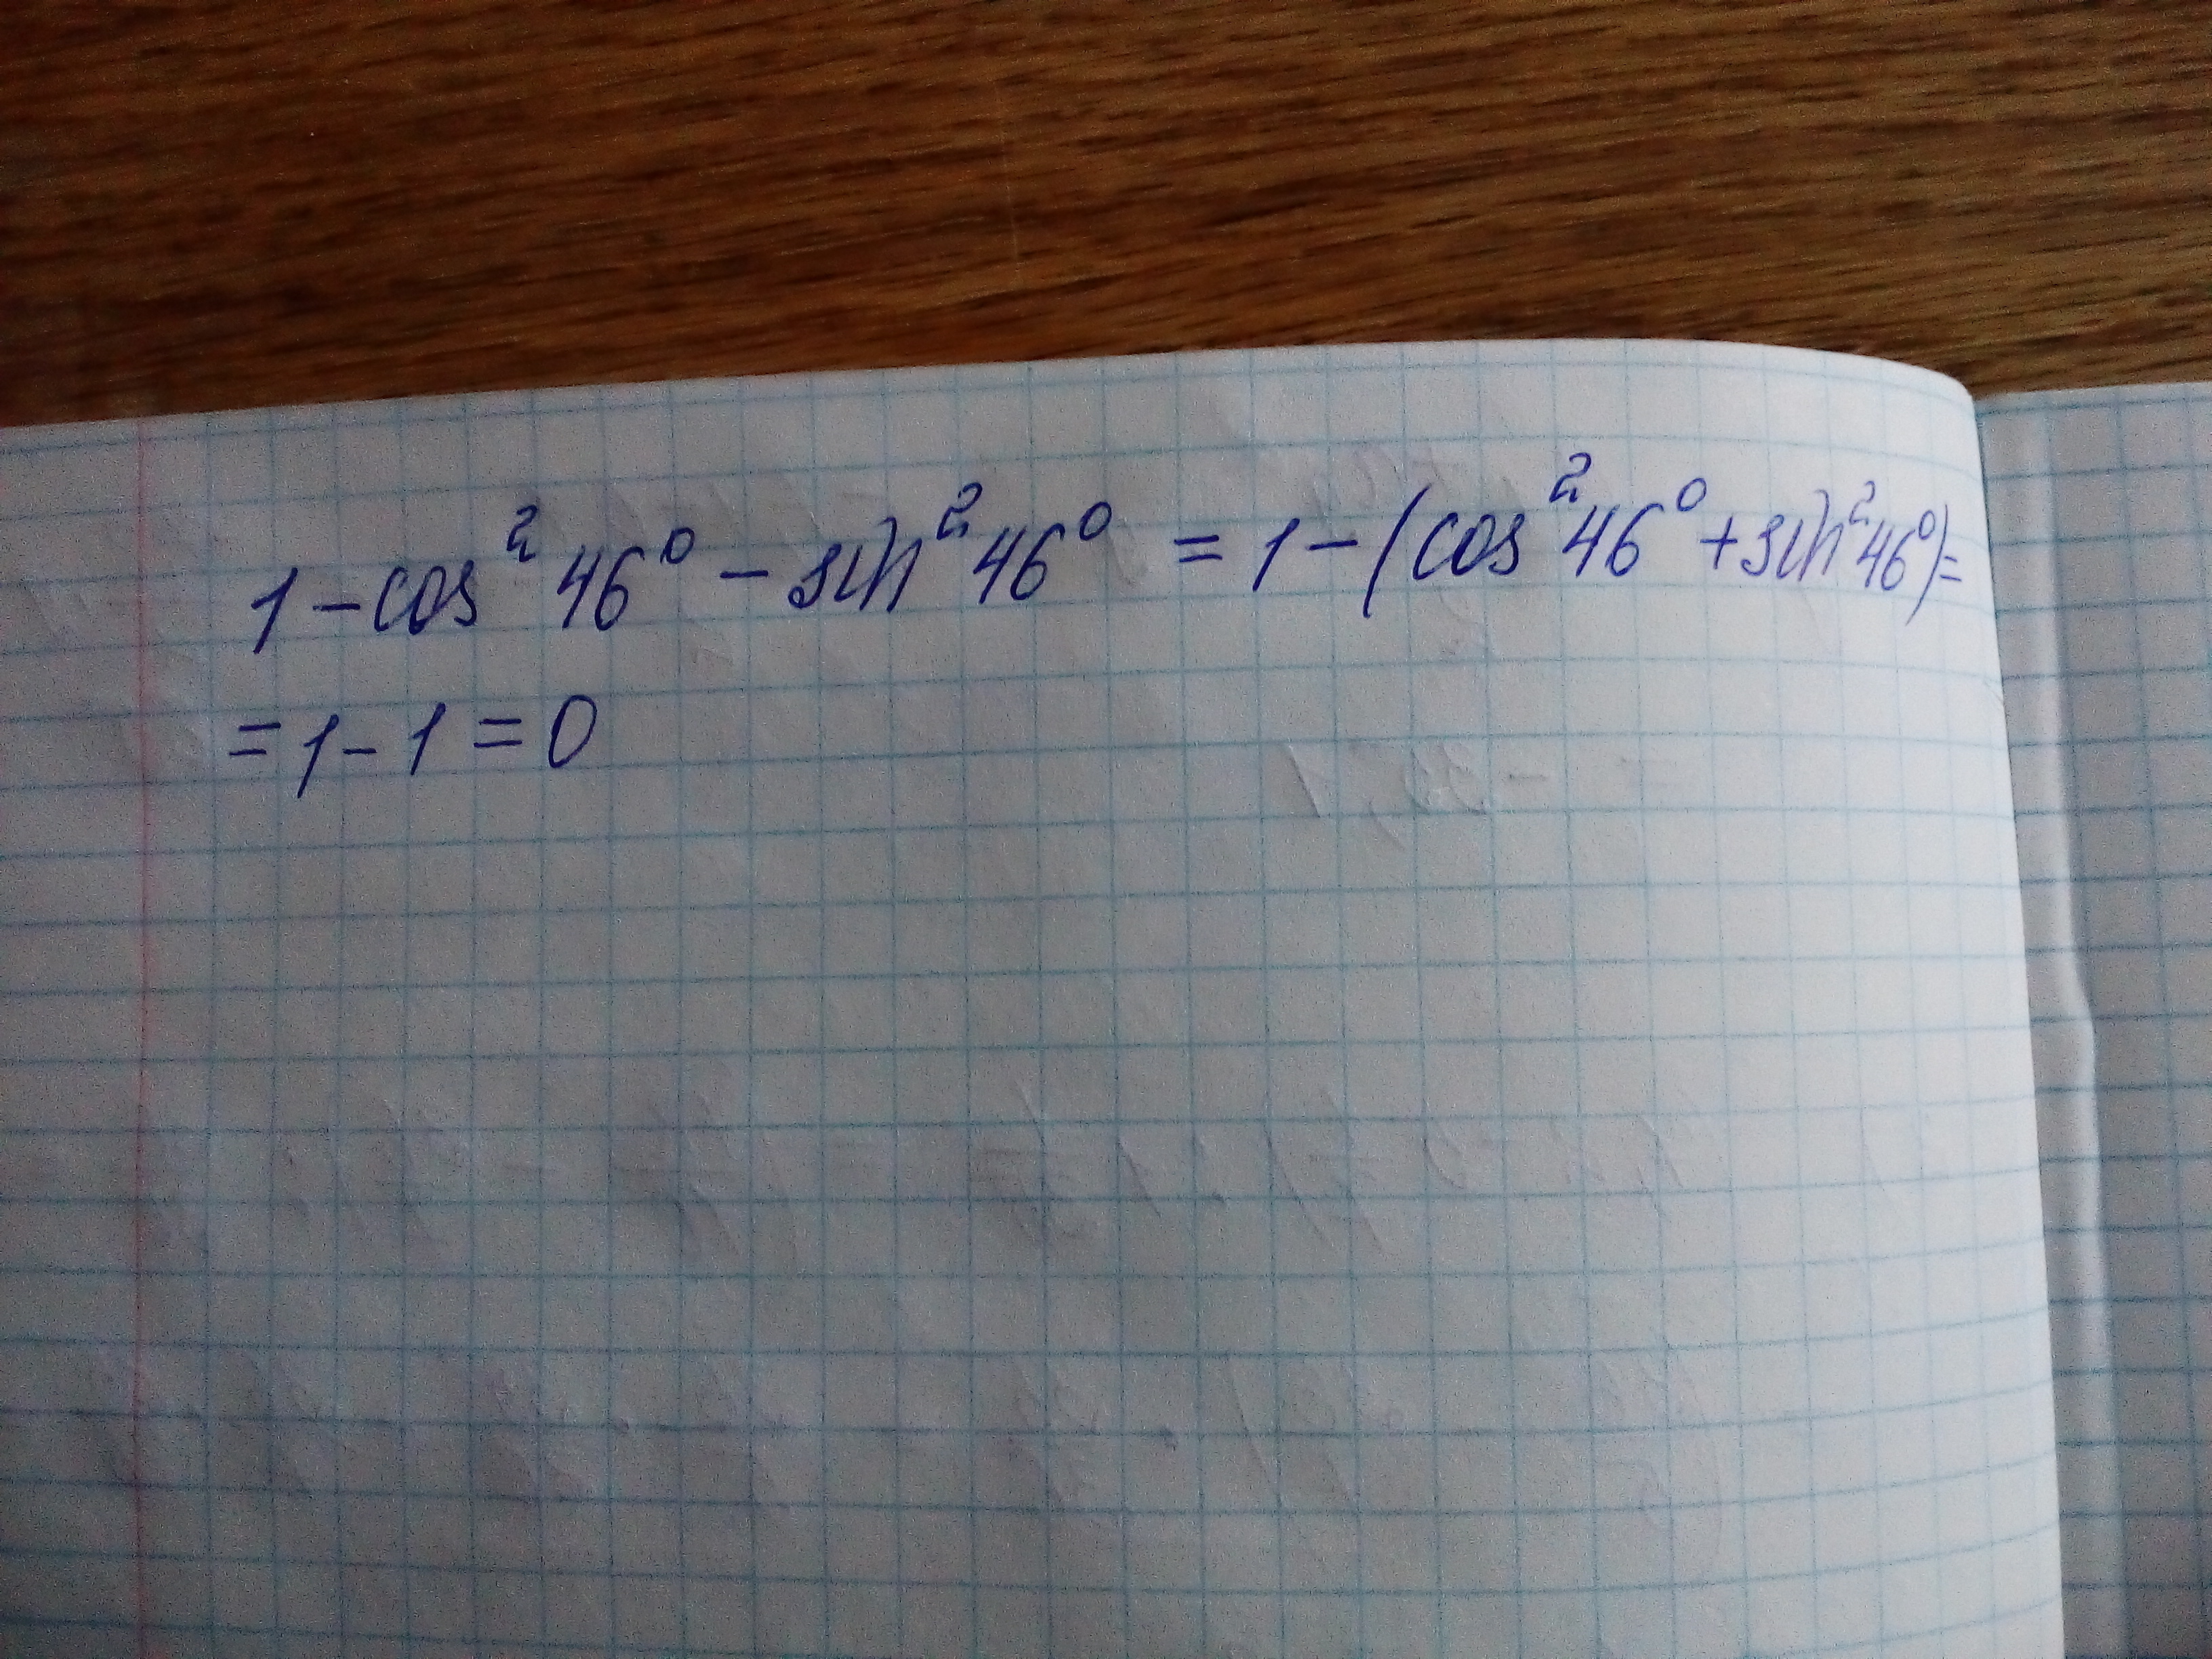 1 - cos² 46° - sin² 46° = 1 - (cos² 46° + sin² 46°) =
= 1 - 1 = 0